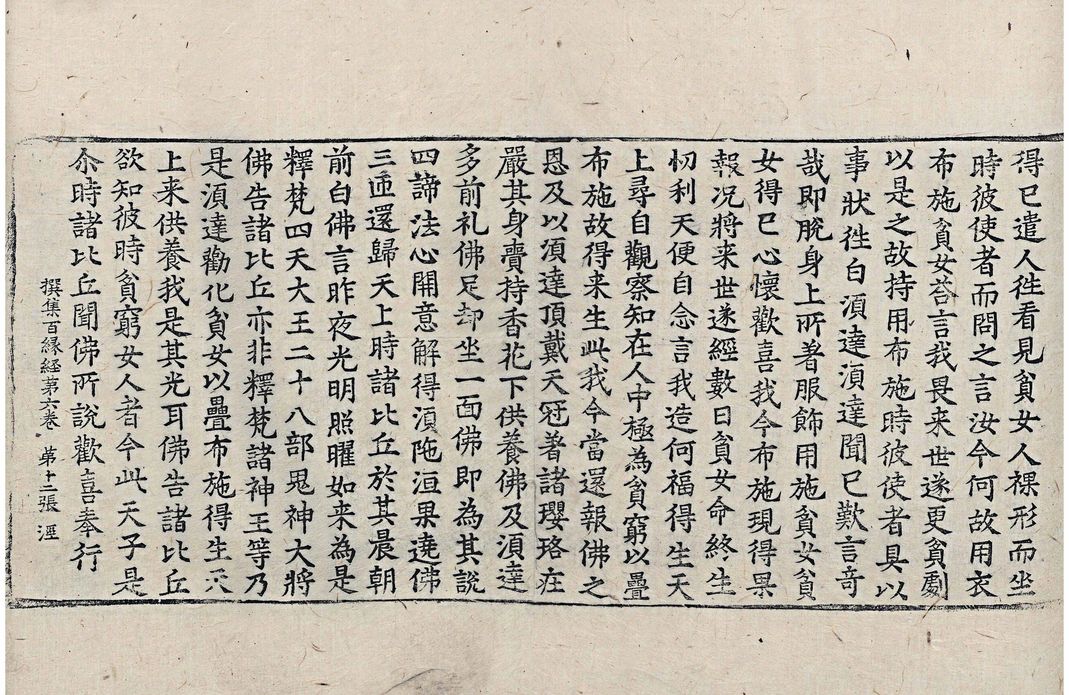 得已遣人徃看見貧女人裸形而坐
時彼使者而問之言汝今何故用衣
布施貧女荅言我畏来世遂更貧劇
以是之故持用布施時彼使者具以
事狀徃白湏達湏達聞已歎言竒
㢤即脫身上所著服飾用施貧女貧
女得已心懷歡喜我今布施現得果
報况將来世遂經數日貧女命終生
忉利天便自念言我造何福得生天
上尋自觀察知在人中極為貧窮以疊
布施故得来生此我今當還報佛之
恩及以湏達頂戴天冠著諸瓔珞疘
嚴其身賷持香花下供養佛及湏達
多前礼佛足却坐一面佛即為其說
四諦法心開意解得湏陁洹果遶佛
三匝還歸天上時諸比丘於其晨朝
前白佛言昨夜光明照曜如来為是
釋梵四天大王二十八部鬼神大將
佛告諸比丘亦非釋梵諸神王等乃
是湏達勸化貧女以疊布施得生天
上来供養我是其光耳佛告諸比丘
欲知彼時貧窮女人者今此天子是
尒時諸比丘聞佛所說歡喜奉行
撰集百縁経第六卷 第十二張 溼